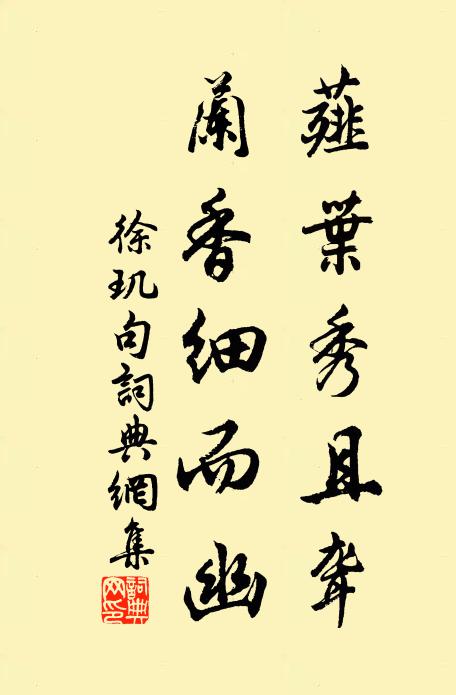 薤葉秀且耸
蘭香細而幽
徐玑句詞典網集
詞典
网印